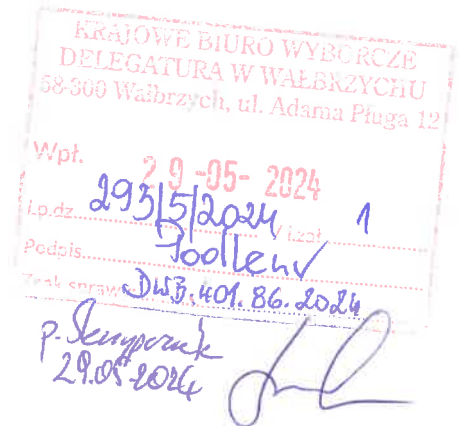 KRAJOWE BIURO WYBORCZE
DELEGATURA W WAŁBRZYCHU
58-300 Wałbrzych, ul. Adama Pługa 12
Wpł. 29-05-2024
L.p.dz. 293/5/2024 / i.zał. 1
Podpis
Znak sprawy DWB.401.86.2024
p.
29.05.2024